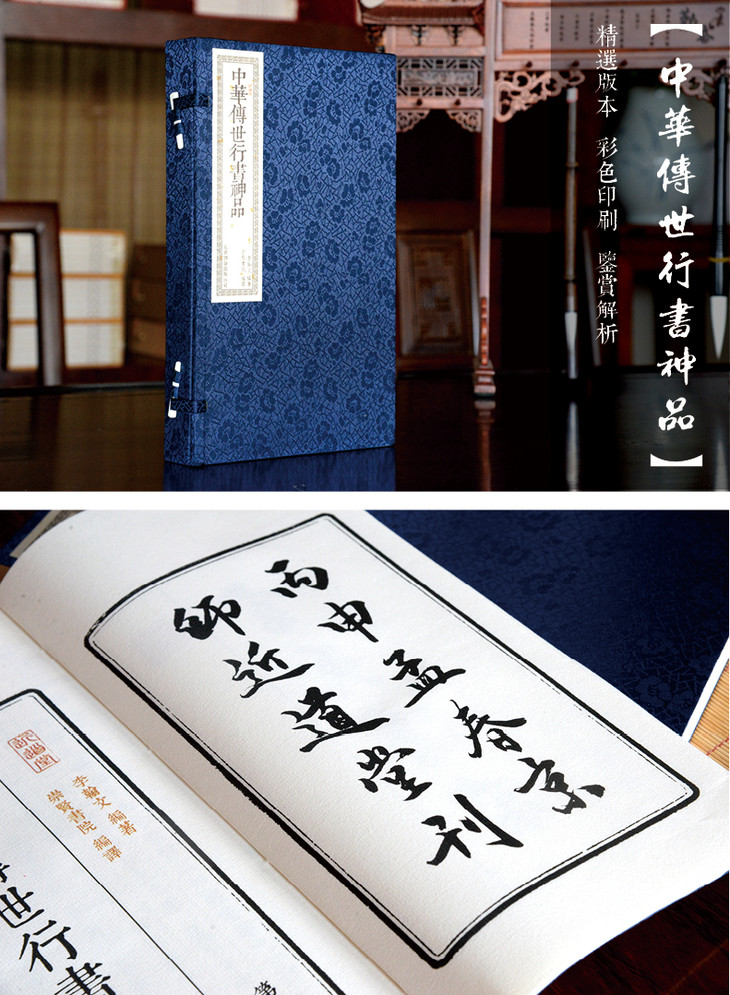 【中華傳世行書神品】
精選版本 彩色印刷 鑒賞解析
中華傳世行書神品
丙申孟春京
師近道堂刊
李翰文 編著
崇賢書院 編譯
世行書
第